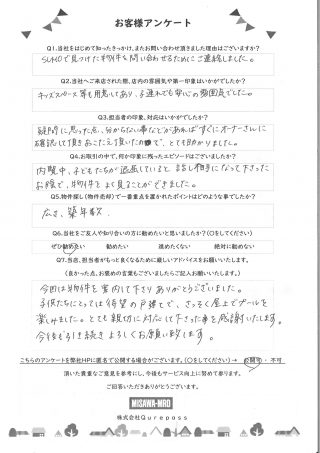 お客様アンケート
Q1.当社をはじめて知ったきっかけ､またお問い合わせ頂きました理由はございますか？
SUMOで見つけた物件を問い合せるためにご連絡しました。
Q2.当社へご来店された際､店内の雰囲気や第一印象はいかがでしたか？
キッズスペース等も用意してあり、子連れでも安心の雰囲気でした。
Q3.担当者の印象､対応はいかがでしたか？
疑問に思った点、分からない事などがあればすぐにオーナーさんに
確認して頂きおこたえ頂いたので、とても助かりました。
Q4.お取引の中で､何か印象に残ったエピソードはございますか？
内覧中、子どもたちが退屈していると、お話し相手になって下さった
お陰で、物件をよく見ることができました。
Q5.物件探し(物件売却)で一番重点を置かれたポイントはどのような事でしたか？
広さ、築年数.
Q6.当社をご友人や知り合いの方に勧めたいと思いましたか？(○をしてください)
ぜひ勧めたい 勧めたい 進めたくない 絶対に勧めない
Q7.当店、担当者がもっと良くなるために厳しいアドバイスをお願いいたします。
(良かった点、お褒めの言葉もございましたらご記入お願いいたします。)
今回は物件を案内して下さりありがとうございました。
子供たちにとっては待望の戸建てで、さっそく屋上でプールを
楽しみました。とても親切に対応して下さった事を感謝いたします。
今後とも引き続きよろしくお願い致します。
こちらのアンケートを弊社HPに匿名で公開する場合がございます。(○をしてください)→ 公開可・不可
頂いた貴重なご意見を参考にし、今後もサービス向上に努めて参ります。
ご回答いただきありがとうございます。
MISAWA-MRD
株式会社Qureposs